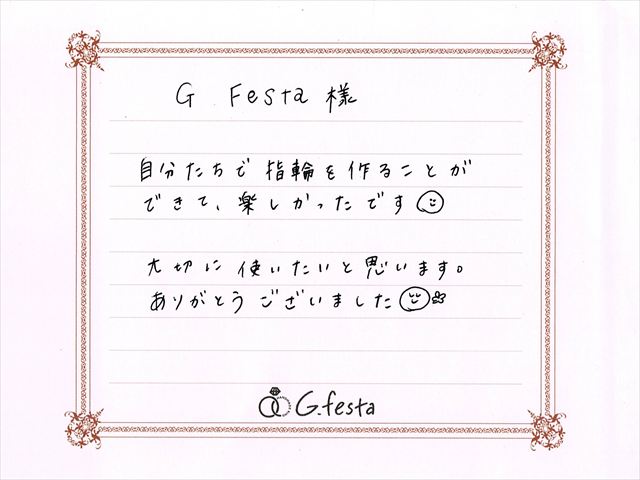 G Festa 様
自分たちで指輪を作ることが
できて、楽しかったです
大切に使いたいと思います。
ありがとうございました
G.festa